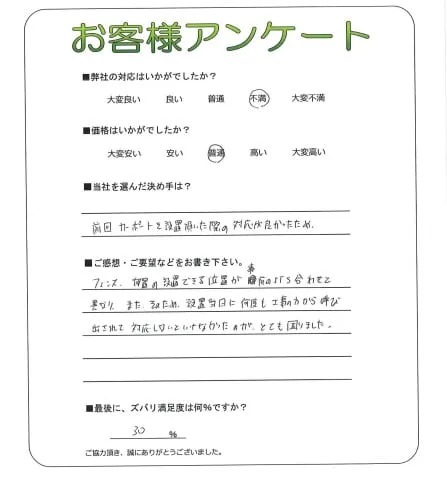 お客様アンケート
■弊社の対応はいかがでしたか?
大変良い 良い 普通 不満 大変不満
■価格はいかがでしたか?
大変安い 安い 普通 高い 大変高い
■当社を選んだ決め手は?
前回カーポートを設置頂いた際の対応が良かったため。
■ご感想・ご要望などをお書き下さい。
フェンス、の設置できる位置が事前の打ち合わせと
異なり、また、そのため、設置当日に何度も工事の方から呼び
出されて対応しないといけなかったのが、とても困りました。
■最後に、ズバリ満足度は何%ですか?
30 %
ご協力頂き、誠にありがとうございました。